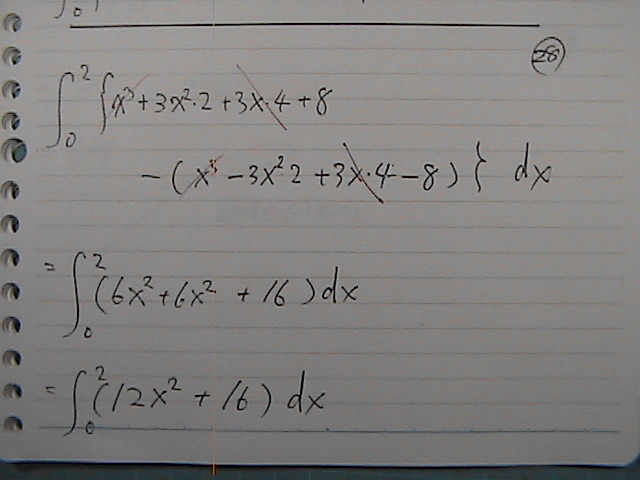 28
∫₀² {x³ + 3x²·2 + 3x·4 + 8
- (x³ - 3x²2 + 3x·4 - 8)} dx
= ∫₀² (6x² + 6x² + 16) dx
= ∫₀² (12x² + 16) dx